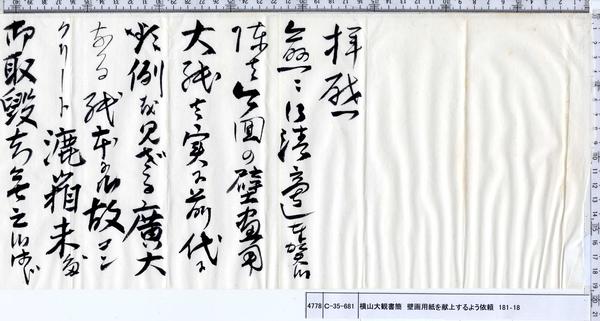 拝啓
益々御清適奉賀候
陳者今回の壁畫用
大紙は実に前代に
類例を見ざる廣大
なる紙本にて故コン
クリート漉箱未だ
御取毀を
4778 C-35-681 横山大観書簡 壁画用紙を献上するよう依頼 181-18